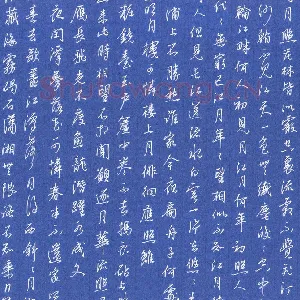 月照花林皆似霰
江天一色無纖塵皎皎空中
輪江畔何人初見月江月何年初照人
代代無窮已江月年年望相似不知江月
人但見長江送流水白雲一片去悠悠
浦上不勝愁誰家今夜扁舟子何處
明月樓可憐樓上月徘徊應照離
粧鏡臺玉戶簾中卷不去擣衣砧上
來此時相望不相聞願逐月華流照
雁長飛光不度魚龍潛躍水成文
夜閒潭夢落花可憐春半不還家
去欲盡江潭落月復西斜斜月
藏海霧碣石瀟湘無限路不知乘月